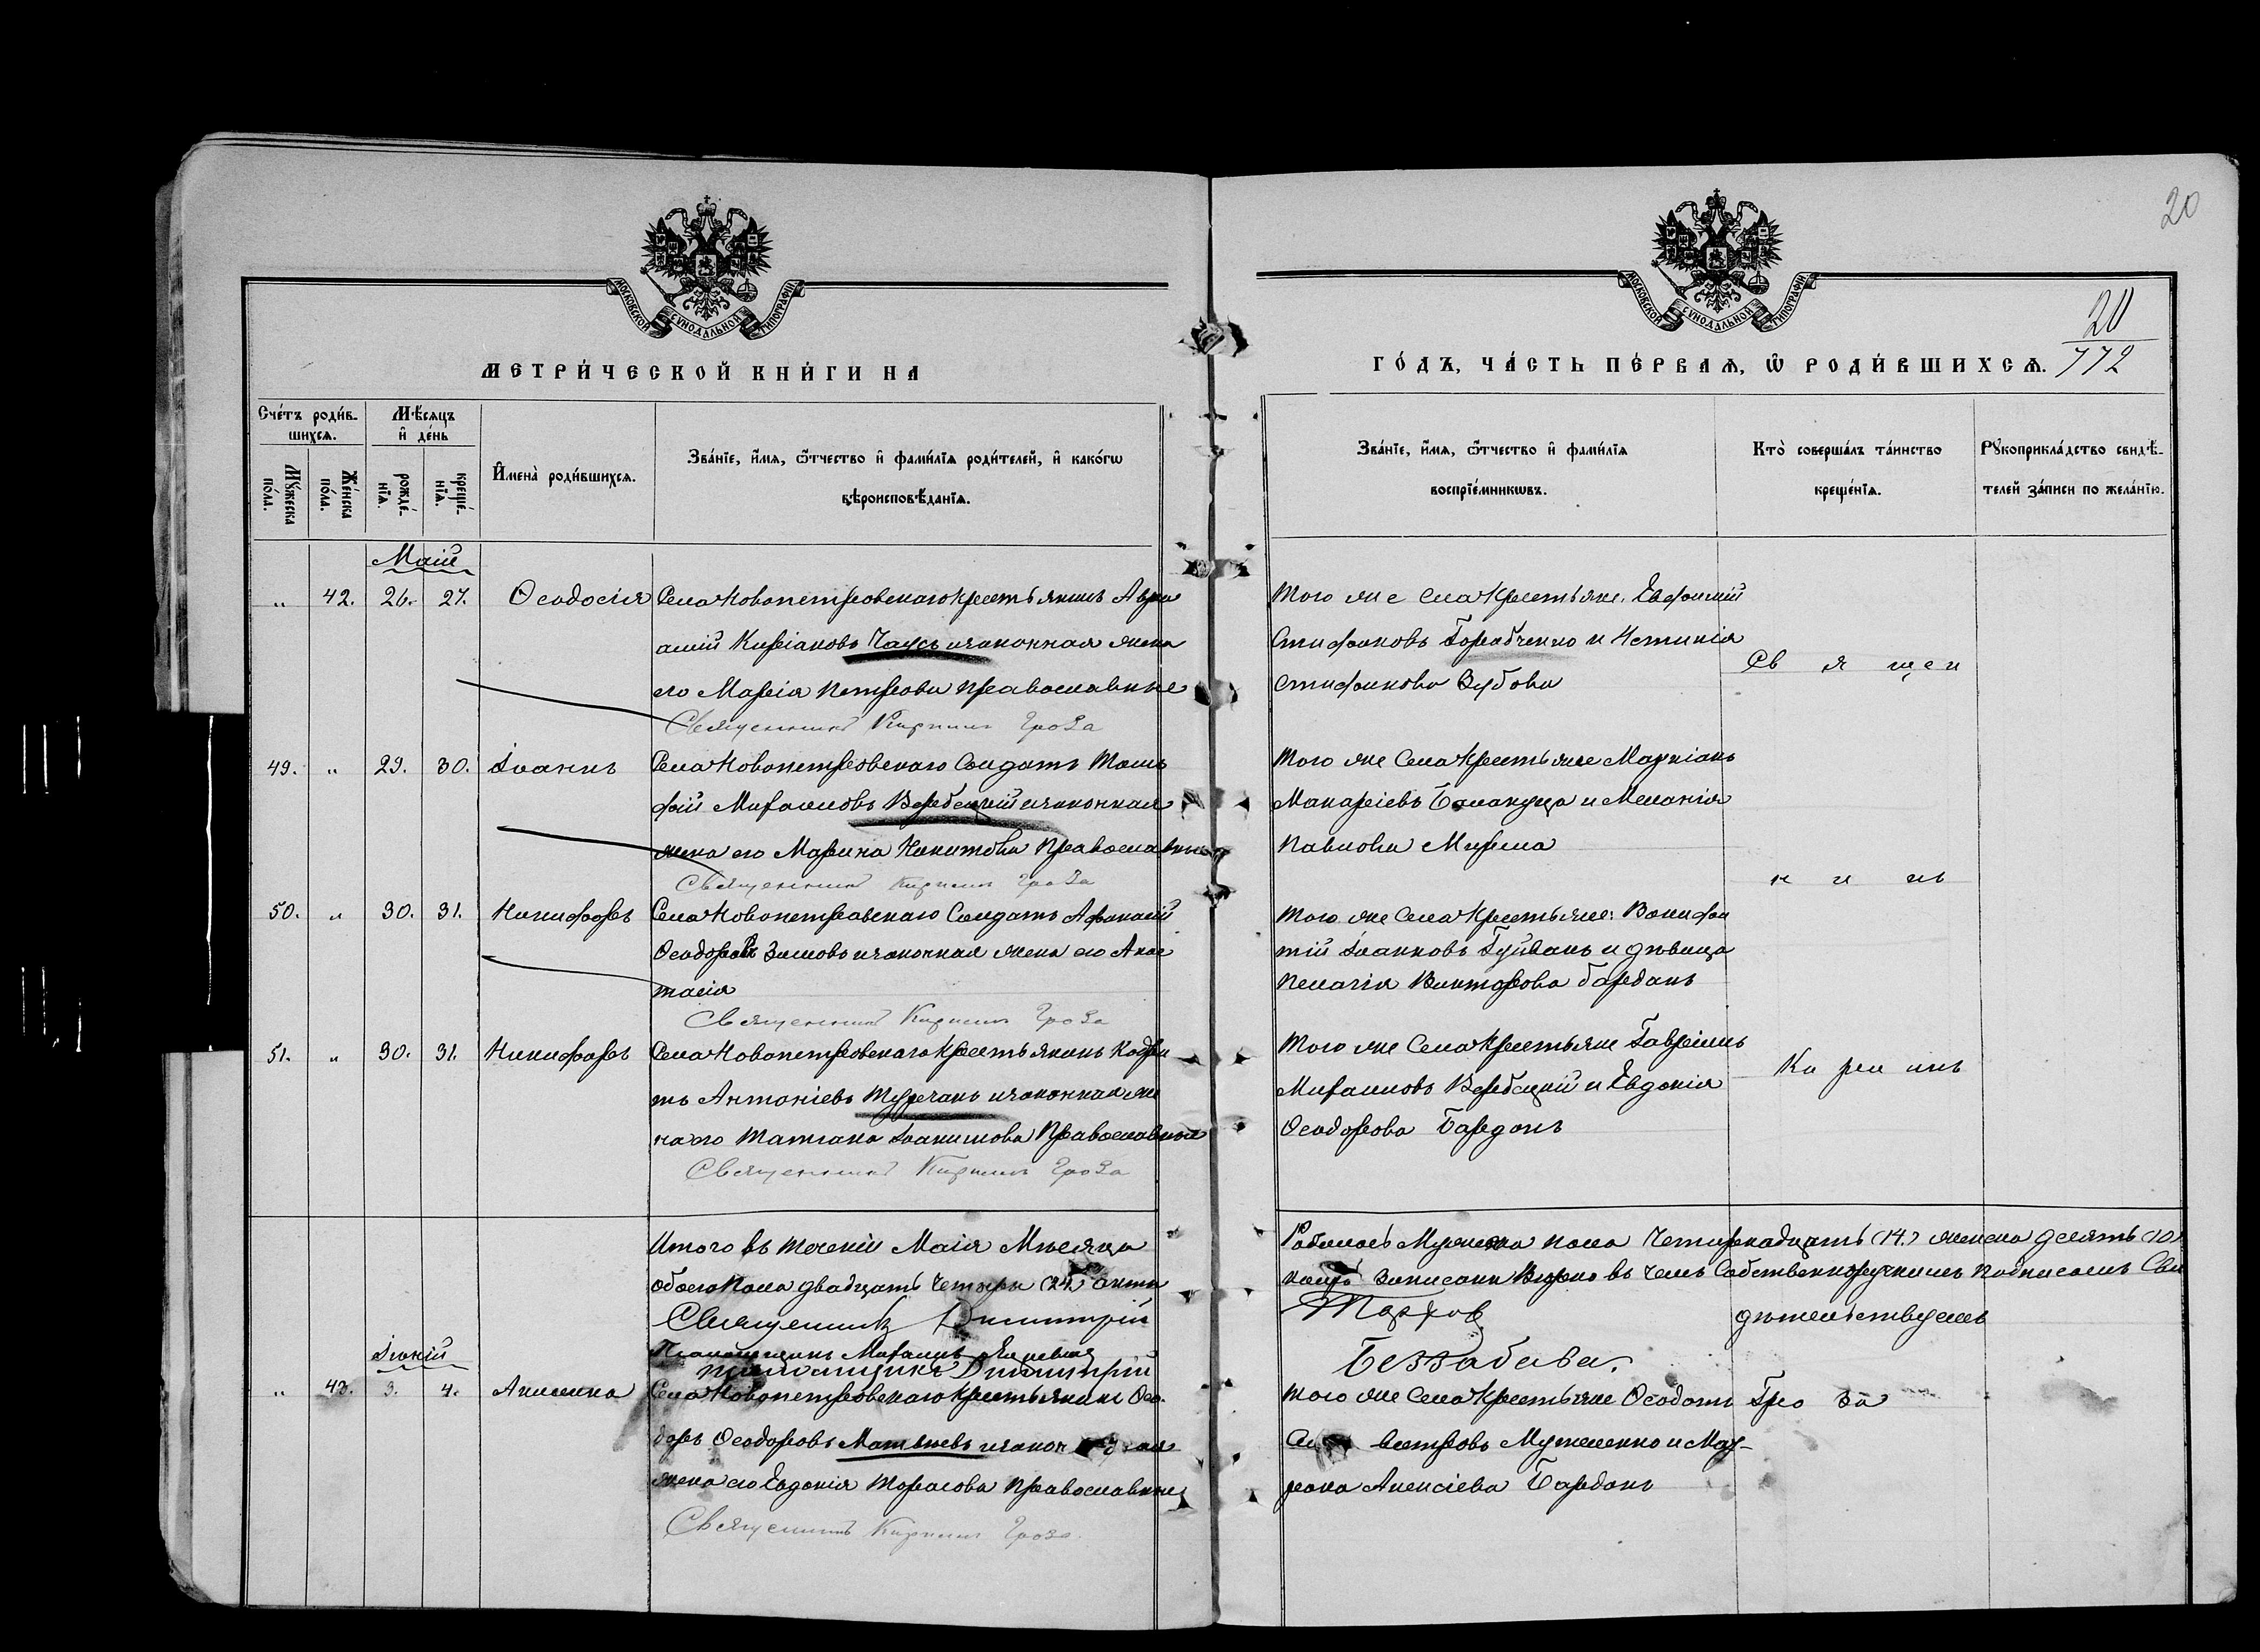 20
МОСКОВСКОЙ СУНОДАЛЬНОЙ ТИПОГРАФІИ
МОСКОВСКОЙ СУНОДАЛЬНОЙ ТИПОГРАФІИ
20
772
МЕТРИ́ЧЕСКОЙ КНИ́ГИ НА
ГО́ДЪ, ЧА́СТЬ ПЕ́РВАѦ, Ѡ҆ РОДИ́ВШИХСѦ.
Сче́тъ роди́в-
шихсѧ.
Мꙋ́жеска
по́ла.
Же́нска
по́ла.
Мѣ́сѧцъ
и҆ де́нь
рожде́-
нїѧ.
креще́-
нїѧ.
И҆мена̀ роди́вшихсѧ.
Зва́нїе, и҆́мѧ, ѻ҆́тчество и҆ фамі́лїѧ роди́телей, и҆ како́гѡ
вѣроисповѣ́данїѧ.
Зва́нїе, и҆́мѧ, ѻ҆́тчество и҆ фамі́лїѧ
воспрїе́мникѡвъ.
Кто̀ соверша́лъ та́инство
креще́нїѧ.
Рꙋкоприкла́дство свидѣ́-
телей за́писи по жела́нїю.
Маій
" 42. 26. 27. Ѳеодосія Села Новопетровскаго крестьянинъ Авра
амій Киріановъ Чаусъ и законная жена
его Марія Петрова Православные
Священникъ Кириллъ Гроза
Того же села крестьяне: Евфимій
Стифановъ Горабченко и Устинія
Стифанова Зубова
Св я щен
49. " 29. 30. Іоаннъ Села Новопетровскаго Солдатъ Тимо
фій Михаиловъ Вербецкій и законная
жена его Марина Никитова Православные
Священникъ Кириллъ Гроза
Того же Села крестьяне Маркіанъ
Макаріевъ Балануца и Меланія
Павлова Мирша
н и къ
50. " 30. 31. Никифоръ Села Новопетровскаго Солдатъ Афанасій
Ѳеодоровъ Зимовъ и законная жена его Анас
тасія
Священникъ Кириллъ Гроза
Того же Села крестьяне: Вонифа
тій Іоанновъ Гуйванъ и дѣвица
Пелагія Викторова Бардакъ
51. " 30. 31. Никифоръ Села Новопетровскаго крестьянинъ Кодра
тъ Антоніевъ Туречанъ и законная же
на его Татіана Іоакимова Православные
Священникъ Кириллъ Гроза
Того же Села крестьяне Гавріилъ
Михаиловъ Вербецкій и Евдокія
Ѳеодорова Бардакъ
Ки рил лъ
Итого въ теченіи Маія Мѣсяца
обоего пола двадцать четыри (24) акты
Священникъ Димитрій
Родилось Мужеска пола Четырнадцать (14.) женска десять (10)
записаны Вѣрно въ чемъ Собственноручнымъ подписомъ Сви
дѣтельствуемъ
Іюній
" 43. 3. 4. Акилина Села Новопетровскаго крестьянинъ Ѳео-
доръ Ѳеодоровъ Матвѣевъ и законная
жена его Евдокія Тарасова Православные
Священникъ Кириллъ Гроза.
Того же Села крестьяне Ѳеодотъ
Мужеленко и Мат-
рона Алексіева Бардакъ
Гро за